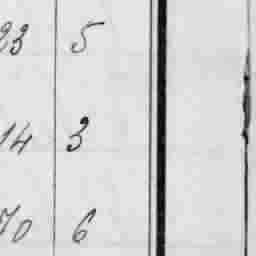 23 5
14 3
70 6